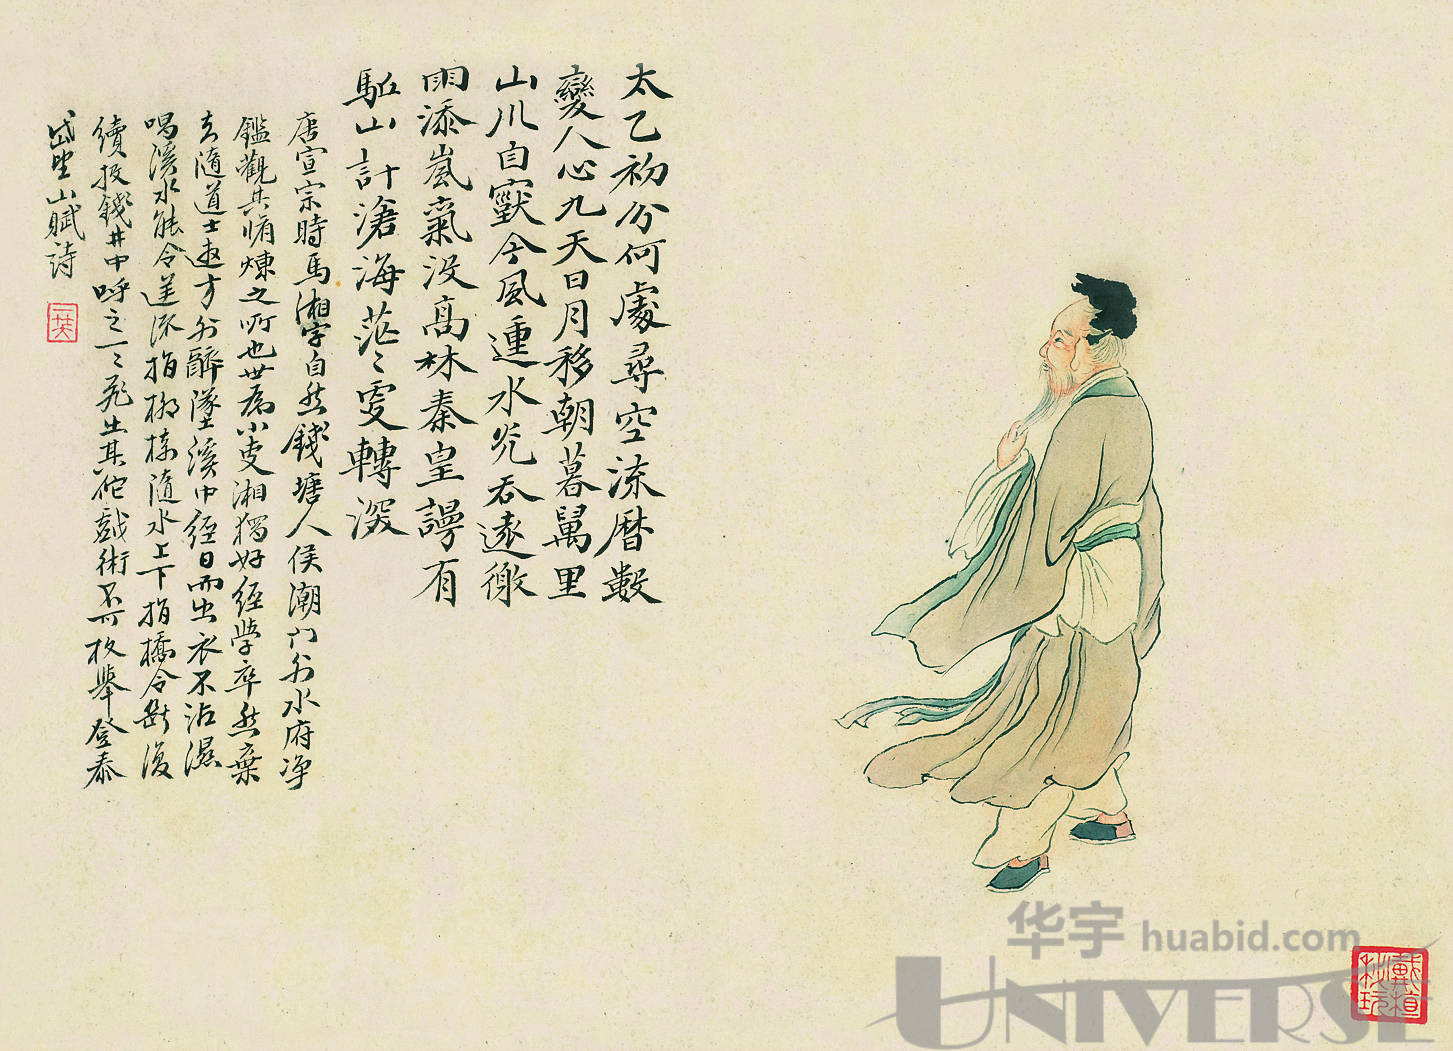 太乙初分何處尋空流曆數
變人心九天日月移朝暮萬里
山川自獸今風連水光吞遠徼
雨添嵐氣沒高林秦皇謾有
駈山計滄海茫〻更轉深
唐宣宗時馬湘字自然錢塘人侯潮門外水府净
鑑觀其脩煉之所也世為小吏湘獨好經學卒然棄
去隨道士遊方外醉墜溪中經日而出衣不沾濕
喝溪水能令逆流指柳株隨水上下指橋令斷復
續投錢井中呼之一〻飛出其佗戲術不可枚舉登泰
望山賦詩
戴植
秋玩
华宇 huabid.com
UNIVERSE